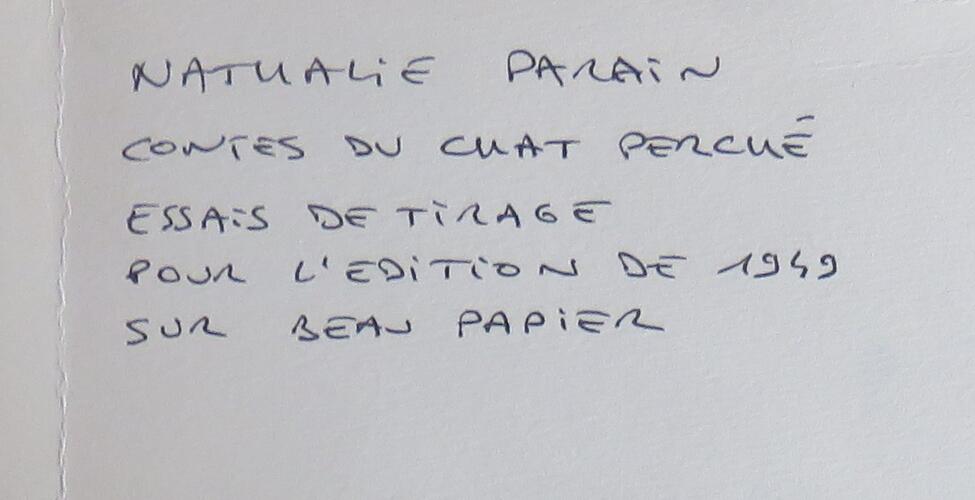 NATHALiE PARAiN
CONTES DU CHAT PERCHÉ
ESSAiS DE TiRAGE
POUR L'EDiTiON DE 1949
SUR BEAU PAPiER